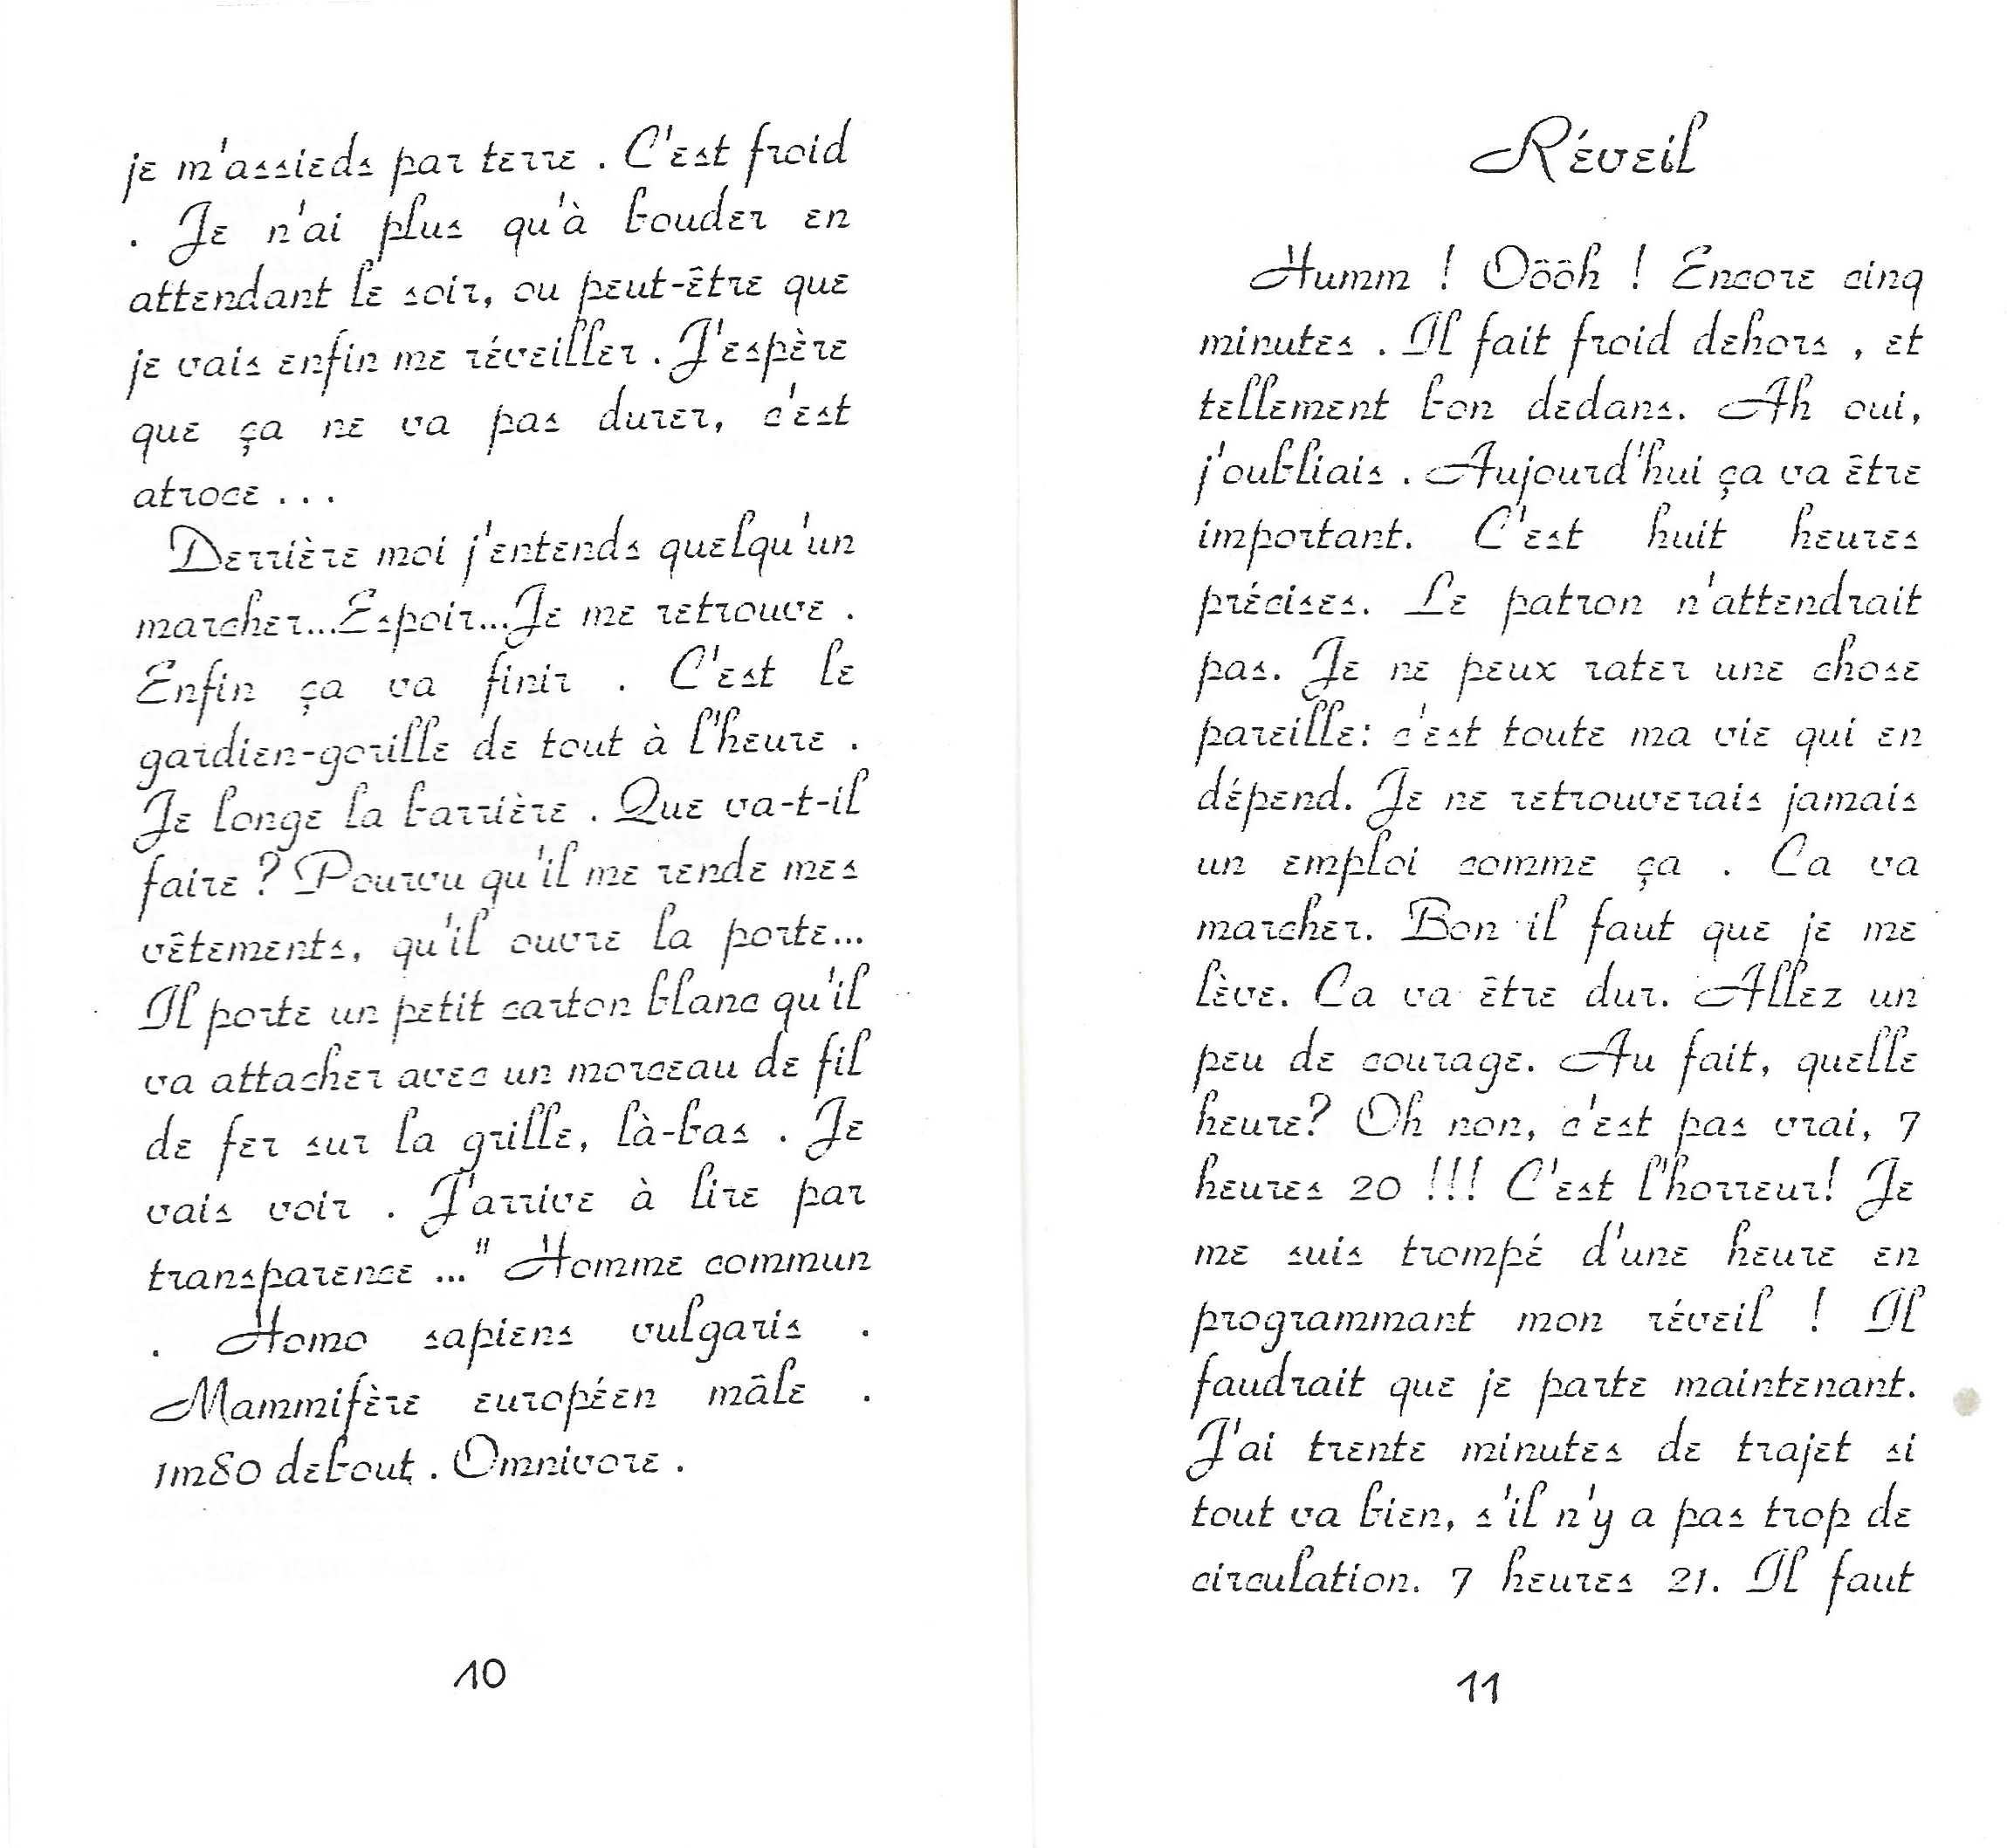 je m'assieds par terre . C'est froid
. Je n'ai plus qu'à bouder en
attendant le soir, ou peut-être que
je vais enfin me réveiller . J'espère
que ça ne va pas durer, c'est
atroce . . .
Derrière moi j'entends quelqu'un
marcher...Espoir...Je me retrouve .
Enfin ça va finir . C'est le
gardien-gorille de tout à l'heure .
Je longe la barrière . Que va-t-il
faire ? Pourvu qu'il me rende mes
vêtements, qu'il ouvre la porte...
Il porte un petit carton blanc qu'il
va attacher avec un morceau de fil
de fer sur la grille, là-bas . Je
vais voir . J'arrive à lire par
transparence ..." Homme commun
. Homo sapiens vulgaris .
Mammifère européen mâle .
1m80 debout . Omnivore .
10
Réveil
Humm ! Oôôh ! Encore cinq
minutes . Il fait froid dehors , et
tellement bon dedans. Ah oui,
j'oubliais . Aujourd'hui ça va être
important. C'est huit heures
précises. Le patron n'attendrait
pas. Je ne peux rater une chose
pareille: c'est toute ma vie qui en
dépend. Je ne retrouverais jamais
un emploi comme ça . Ca va
marcher. Bon il faut que je me
lève. Ca va être dur. Allez un
peu de courage. Au fait, quelle
heure? Oh non, c'est pas vrai, 7
heures 20 !!! C'est l'horreur! Je
me suis trompé d'une heure en
programmant mon réveil ! Il
faudrait que je parte maintenant.
J'ai trente minutes de trajet si
tout va bien, s'il n'y a pas trop de
circulation. 7 heures 21. Il faut
11